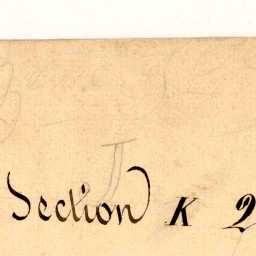 Section K 2